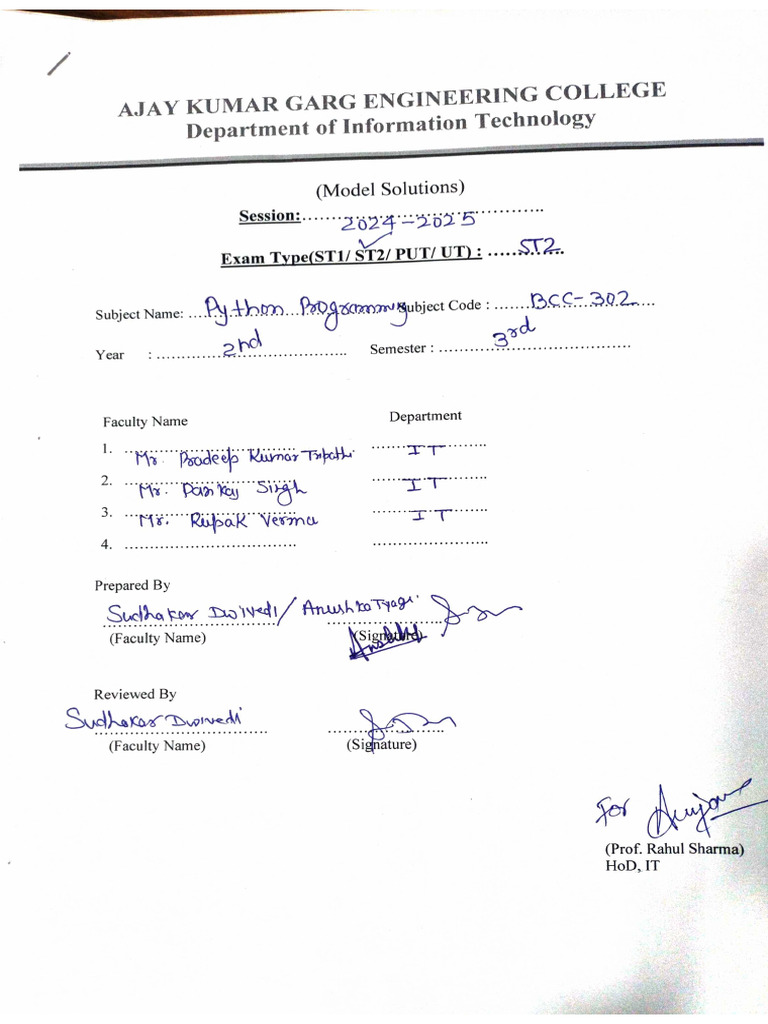 AJAY KUMAR GARG ENGINEERING COLLEGE
Department of Information Technology
(Model Solutions)
Session:……………………………………..
2024-2025
Exam Type(ST1/ ST2/ PUT/ UT) : ………….. ST2
Subject Name: ………………… Python Programming Subject Code : ………………………. BCC-302
Year : ………………………………….. 2nd Semester : …………………………………… 3rd
Faculty Name Department
1. ………………………………. Mr. Pradeep Kumar Tripathi …………………….. IT
2. ………………………………. Mr. Pankaj Singh …………………….. IT
3. ………………………………. Mr. Rupak Verma …………………….. IT
4. ………………………………. ……………………..
Prepared By
Sudhakar Dwivedi/ Anushka Tyagi.
(Faculty Name) (Signature)
Reviewed By
Sudhakar Dwivedi
(Faculty Name) (Signature)
For
(Prof. Rahul Sharma)
HoD, IT